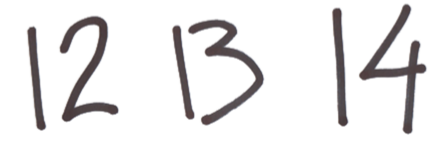 12 13 14